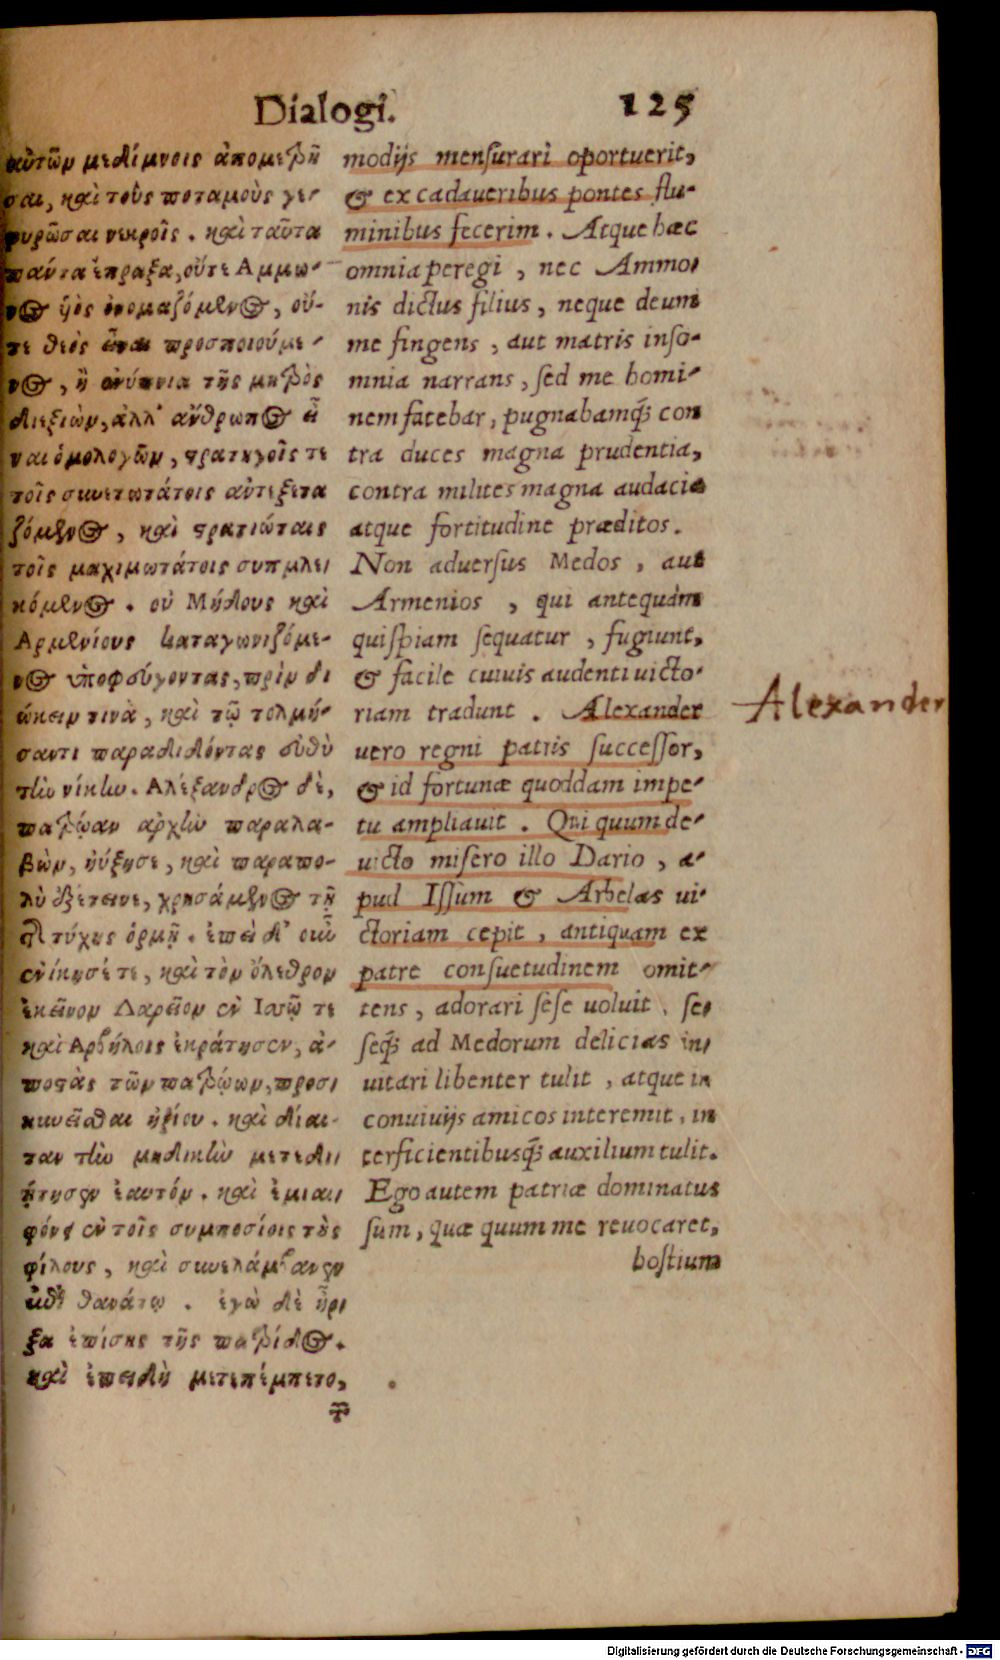 Dialogi. 125
αὐτῶν μεδίμνοις ἀπομετρῆ
σαι, καὶ τοὺς ποταμοὺς γε-
φυρῶσαι νεκροῖς . καὶ ταῦτα
πάντα ἔπραξα, οὔτε Αμμω-
νος ὑὸς ὀνομαζόμενος, οὔ-
τε θεὸς εἶναι προσποιούμε-
νος, ἢ ἐνύπνια τῆς μητρὸς
διεξιὼν, ἀλλ' ἄνθρωπος εἶ
ναι ὁμολογῶν, στρατηγοῖς τε
τοῖς συνετωτάτοις αὐτεξετα
ζόμενος, καὶ στρατιώταις
τοῖς μαχιμωτάτοις συμπλει
κόμενος . οὐ Μήδους καὶ
Αρμενίους καταγωνιζόμε-
νος ὑποφεύγοντας, πρὶν δι
ώκειν τινὰ, καὶ τῷ τολμή-
σαντι παραδιδόντας εὐθὺ
τὴν νίκην. Αλέξανδρος δὲ,
πατρῴαν ἀρχὴν παραλα-
βὼν, ηὔξησε, καὶ παραπο-
λὺ ἐξέτεινε, χρησάμενος τῇ
τῆς τύχης ὁρμῇ . ἐπεὶ δ' οὖν
ἐνίκησέ τε, καὶ τὸν ὄλεθρον
ἐκεῖνον Δαρεῖον ἐν Ισσῷ τε
καὶ Αρβήλοις ἐκράτησεν, ἀ-
ποστὰς τῶν πατρῴων, προσ
κυνεῖσθαι ἠξίου . καὶ δίαι-
ταν τὴν μηδικὴν μετεδι
ῄτησεν ἑαυτόν . καὶ ἐμιαι
φόνει ἐν τοῖς συμποσίοις τοὺς
φίλους, καὶ συνελάμβανεν
ἐπὶ θανάτῳ . ἐγὼ δὲ ἦρ
ξα ἐπίσης τῆς πατρίδος.
καὶ ἐπειδὴ μετεπέμπετο,
modijs mensurari oportuerit,
& ex cadaueribus pontes flu-
minibus fecerim . Atque hæc
omnia peregi , nec Ammo-
nis dictus filius , neque deum
me fingens , aut matris inso-
mnia narrans , sed me homi-
nem fatebar , pugnabamq́; con
tra duces magna prudentia,
contra milites magna audacia
atque fortitudine præditos.
Non aduersus Medos , aut
Armenios , qui antequàm
quispiam sequatur , fugiunt,
& facile cuiuis audenti uicto-
riam tradunt . Alexander
uero regni patris successor,
& id fortunæ quoddam impe-
tu ampliauit . Qui quum de-
uicto misero illo Dario , a-
pud Issum & Arbelas ui-
ctoriam cepit , antiquam ex
patre consuetudinem omit-
tens , adorari sese uoluit , se-
seq́; ad Medorum delicias in-
uitari libenter tulit , atque in
conuiuijs amicos interemit , in
terficientibusq́; auxilium tulit.
Ego autem patriæ dominatus
sum , quæ quum me reuocaret,
hostium
Alexander
Digitalisierung gefördert durch die Deutsche Forschungsgemeinschaft - DFG